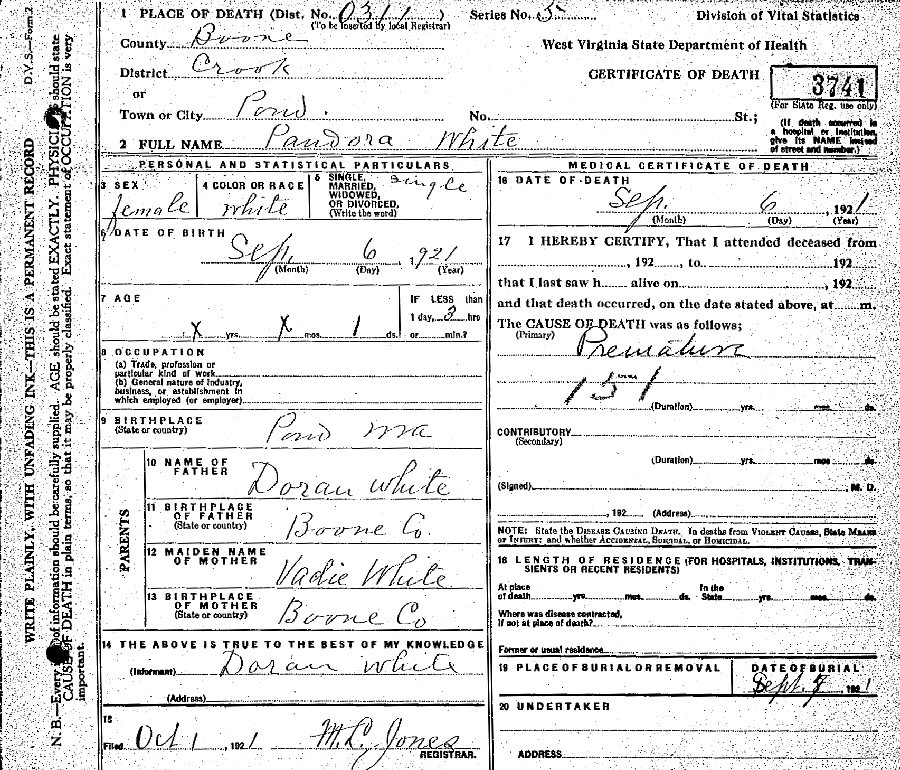 1 PLACE OF DEATH (Dist. No. 0311 ) Series No. 5 Division of Vital Statistics
(To be inserted by local Registrar)
County Boone
West Virginia State Department of Health
District Crook
CERTIFICATE OF DEATH
3741
(For State Reg. use only)
or
Town or City Pond. No. St.;
(If death occurred in a hospital or institution, give its NAME instead of street and number.)
2 FULL NAME Pandora White
PERSONAL AND STATISTICAL PARTICULARS
3 SEX female
4 COLOR OR RACE White
5 SINGLE, MARRIED, WIDOWED, OR DIVORCED, (Write the word) single
6 DATE OF BIRTH
Sep. 6, 1921
(Month) (Day) (Year)
7 AGE
X yrs. X mos. 1 ds.
IF LESS than
1 day, 3 hrs
or min.?
8 OCCUPATION
(a) Trade, profession or
particular kind of work
(b) General nature of industry,
business, or establishment in
which employed (or employer)
9 BIRTHPLACE
(State or country) Pond
PARENTS
10 NAME OF FATHER Doran White
11 BIRTHPLACE OF FATHER
(State or country) Boone Co.
12 MAIDEN NAME OF MOTHER Vadie White
13 BIRTHPLACE OF MOTHER
(State or country) Boone Co
14 THE ABOVE IS TRUE TO THE BEST OF MY KNOWLEDGE
(Informant) Doran White
(Address)
15
Filed Oct 1, 1921 M.L. Jones
REGISTRAR.
MEDICAL CERTIFICATE OF DEATH
16 DATE OF DEATH
Sep. 6, 1921
(Month) (Day) (Year)
17 I HEREBY CERTIFY, That I attended deceased from
, 192 , to 192
that I last saw h alive on , 192
and that death occurred, on the date stated above, at m.
The CAUSE OF DEATH was as follows;
(Primary) Premature
151
(Duration) yrs. mos. ds.
CONTRIBUTORY
(Secondary)
(Duration) yrs. mos. ds.
(Signed) M. D.
, 192 (Address)
NOTE: State the DISEASE CAUSING DEATH. In deaths from VIOLENT CAUSES, State MEANS
OF INJURY: and whether ACCIDENTAL, SUICIDAL, OR HOMICIDAL.
18 LENGTH OF RESIDENCE (FOR HOSPITALS, INSTITUTIONS, TRAN-
SIENTS OR RECENT RESIDENTS)
At place In the
of death yrs. mos. ds. State yrs. mos. ds.
Where was disease contracted,
if not at place of death?
Former or usual residence
19 PLACE OF BURIAL OR REMOVAL
DATE OF BURIAL
Sept. 7 1921
20 UNDERTAKER
ADDRESS
D.V.S.—Form 2
WRITE PLAINLY, WITH UNFADING INK—THIS IS A PERMANENT RECORD
N. B.—Every of information should be carefully supplied. AGE should be stated EXACTLY. should state
CAUSE OF DEATH in plain terms, so that it may be properly classified. Exact statement of OCCUPATION is very
important.